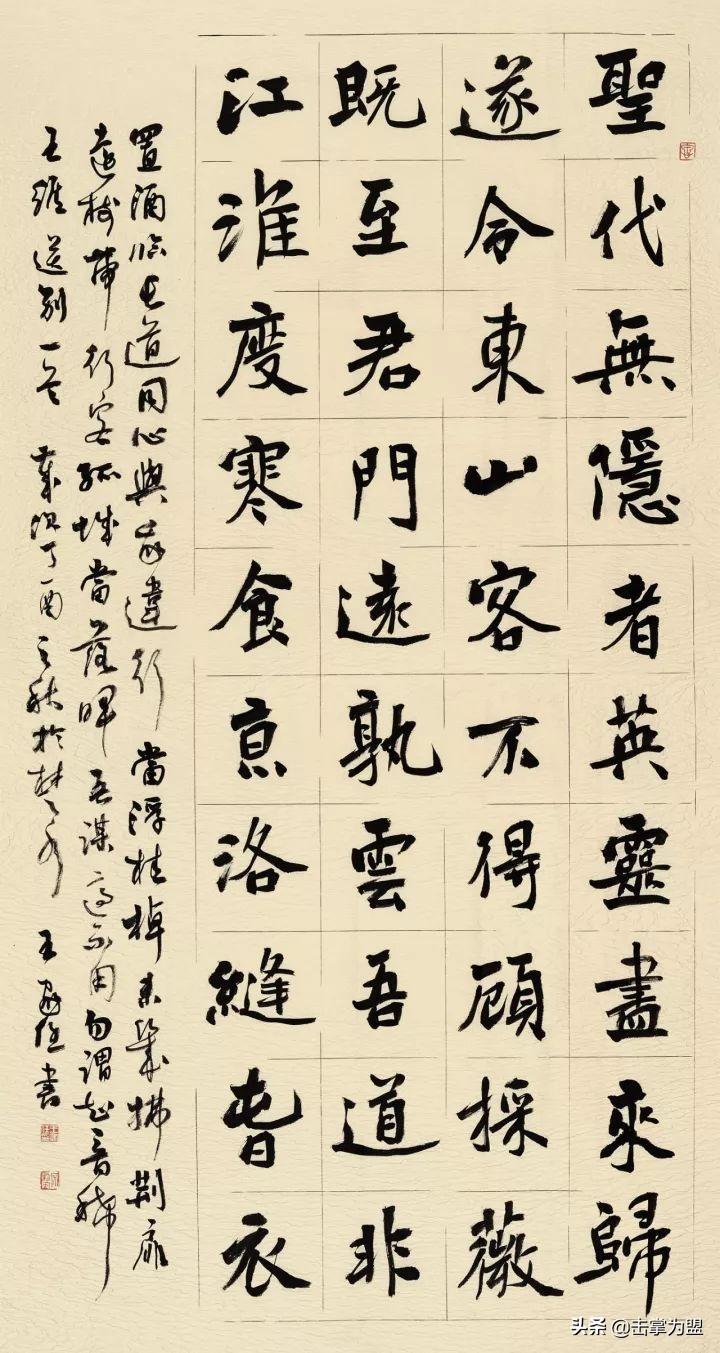 聖代無隱者英靈盡來歸
遂令東山客不得顧採薇
既至君門遠孰雲吾道非
江淮度寒食亰洛縫旾衣
置酒臨長道同心與我違行當浮桂棹未幾拂荊扉
遠樹帶行客孤城當落暉吾謀適不用勿謂知音稀
王維送別一首 歲次丁酉之秋於楚 王 書
头条 @击掌为盟